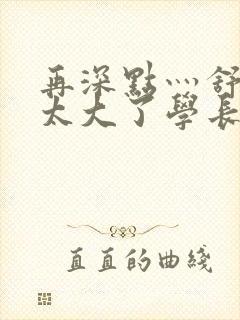 再深點灬舒
太大了學長
直直的曲綫